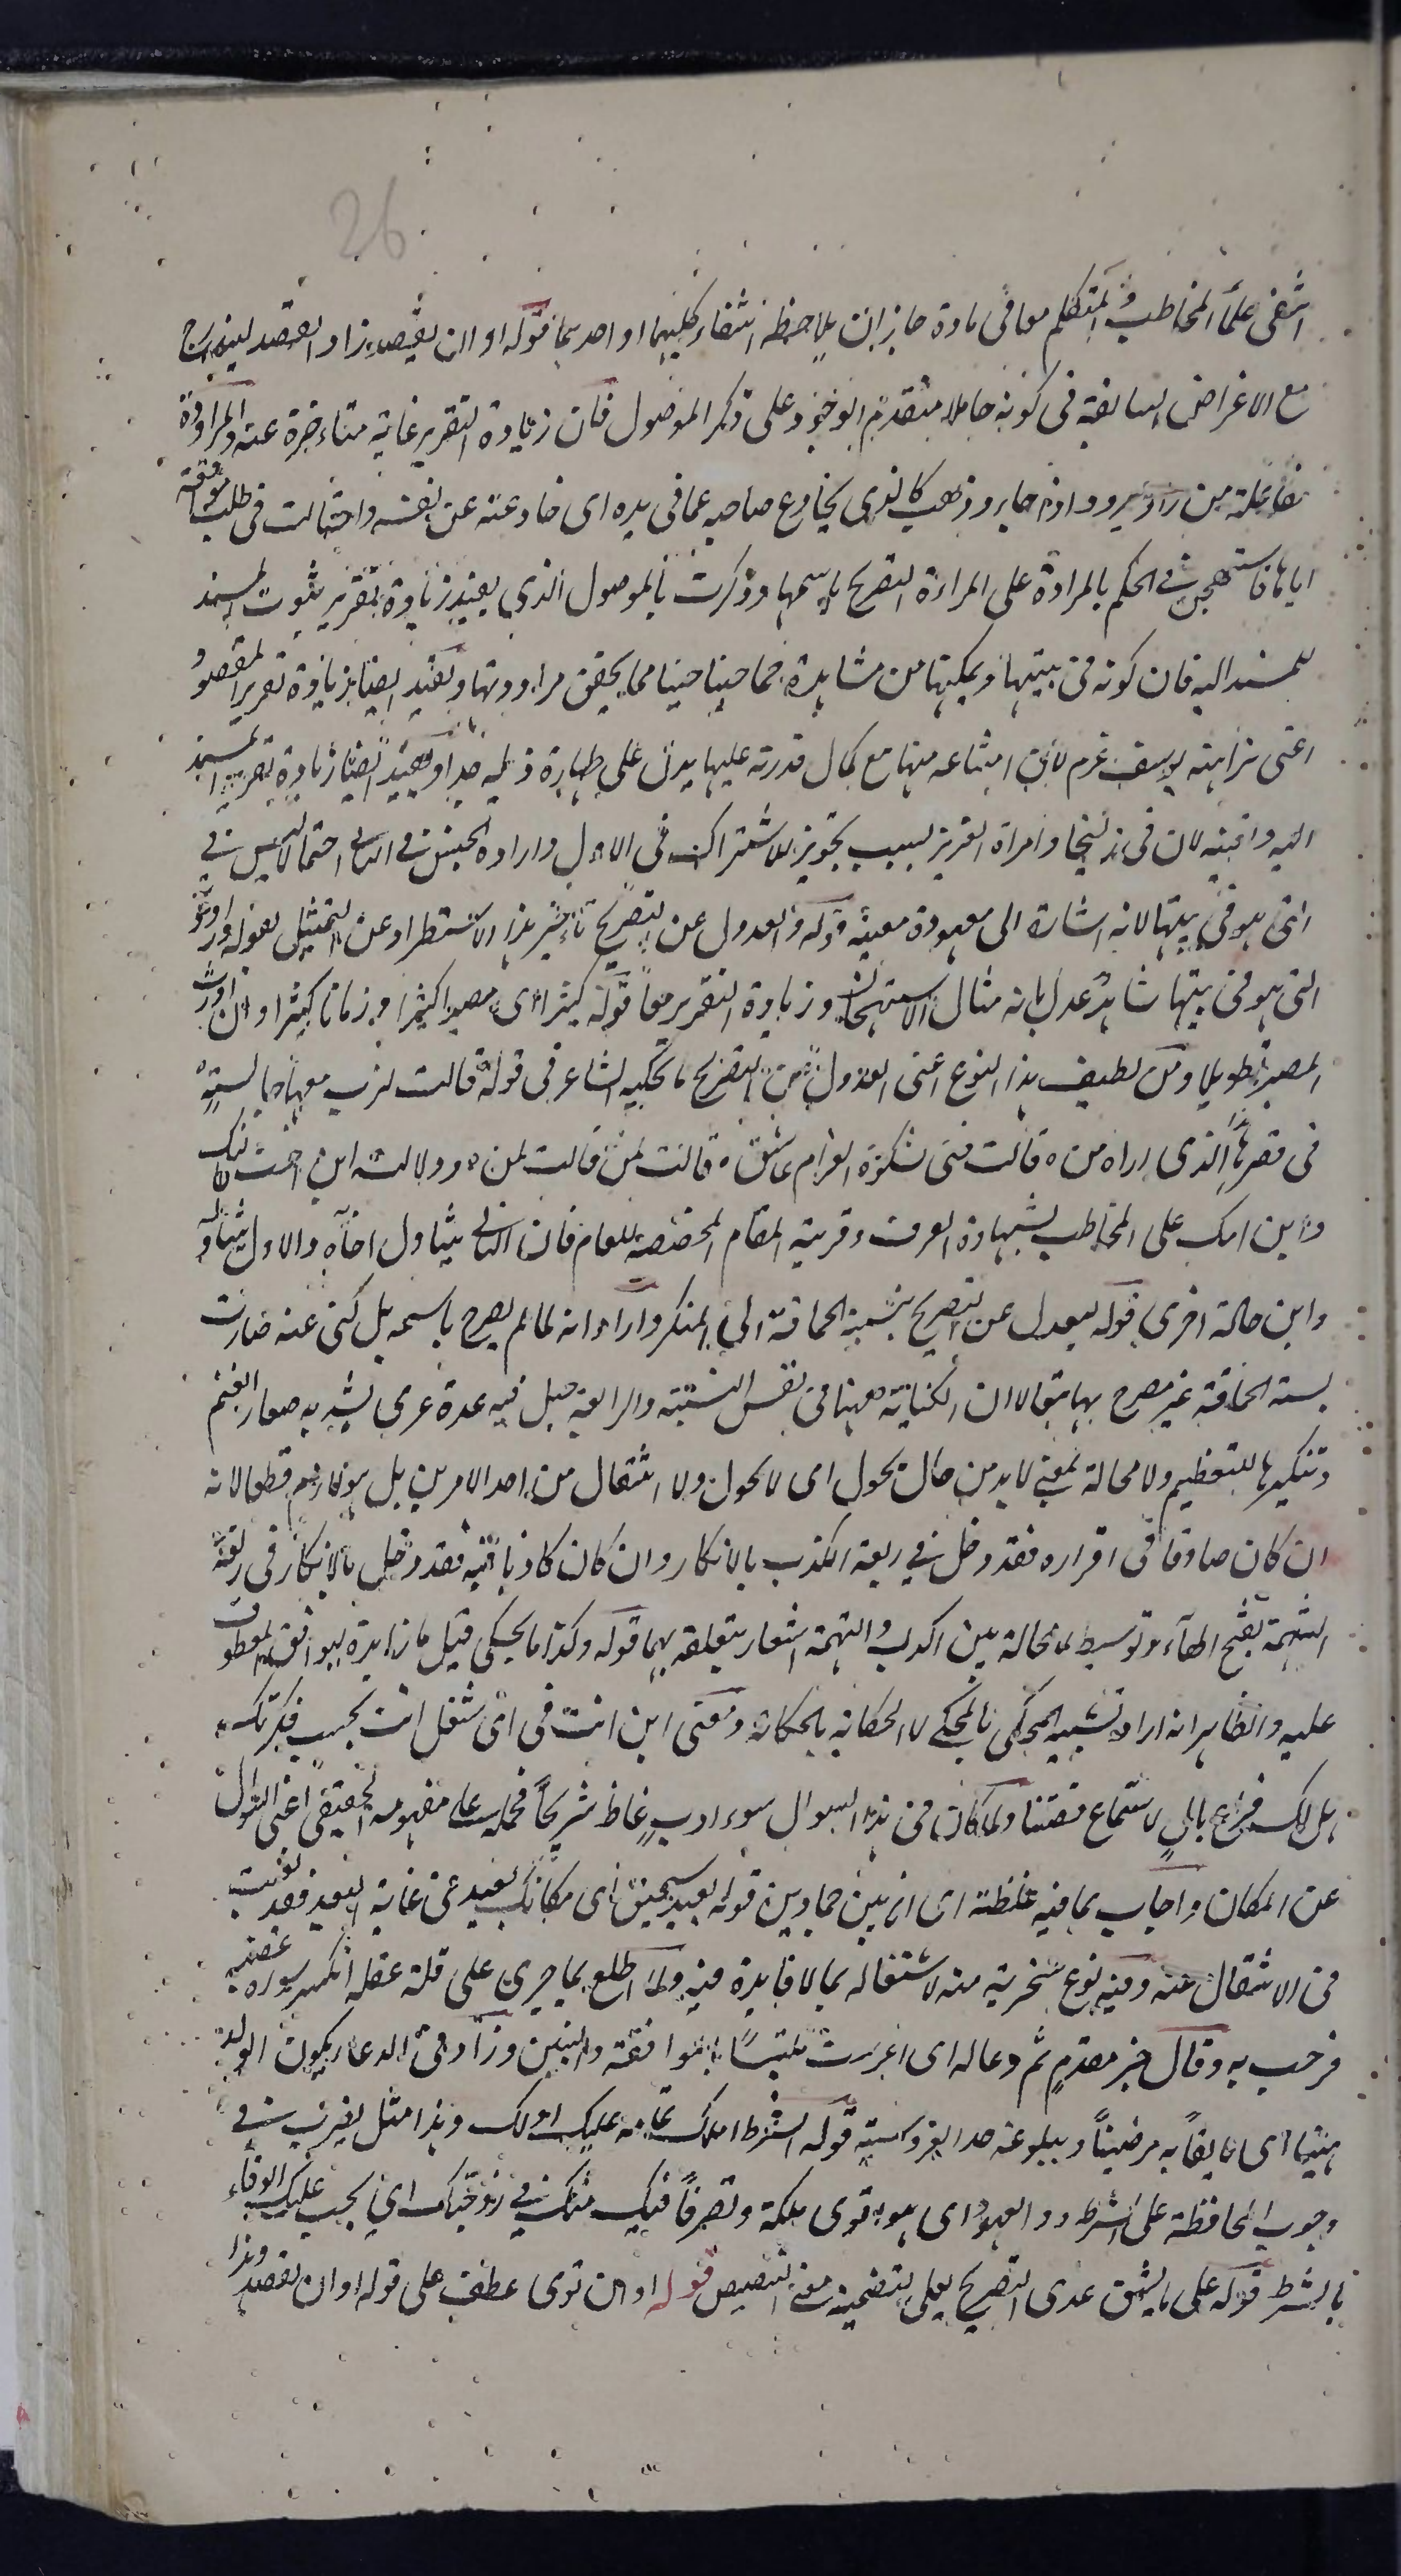 26
انتفى علما المخاطب والمتكلم معا فى مادة جاز ان يلاحظ انتفاء كليهما او احدهما قوله او ان يقصد زاد القصد ليندرج
مع الاغراض السابقة فى كونه حاملا متقدم الوجود على ذكر الموصول فان زيادة التقرير غاية متاخرة عنه والمراودة
مفاعلة من راد يرود اذا جاء وذهب كالذى يخادع صاحبه عما فى يده اى خادعته عن نفسه واحتالت فى طلب موافقته
اياها فاستهجن فى الحكم بالمراودة على المراءة التصريح باسمها وذكرت بالموصول الذى يفيد زيادة تقرير ثبوت المسند
للمسند اليه فان كونه فى بيتها وتمكينها من مشاهدته حينا حينا مما يحقق مراودتها ويفيد ايضا زيادة تقرير المقصود
اعنى نزاهة يوسف عم لان امتناعه منها مع كمال قدرته عليها يدل على طهارة ذيله جدا ويفيد ايضا زيادة تقرير المسند
اليه وانه لان فى زليخا وامراة العزيز بسبب تجويز للاشتراك فى الاول وارادة الجنس فى الثانى احتمالا ليس فى
التى هو فى بيتها لانه اشارة الى معهودة معينة قوله والعدول عن التصريح تاخير هذا الاستطراد عن التمثيل بقوله وراودته
التى هو فى بيتها شاهد عدل بانه مثال الاستهجان وزيادة التقرير معا قوله كثيرا اى مصيرا كثيرا او زمانا كثيرا او ان اورث
المصير تطويلا ومن لطيف هذا النوع اعنى العدول من التصريح ما يحكيه الشاعر فى قوله قالت لترب معها جالسة
فى قصرها الذى اراه من ٥ قالت فتى شكوة الغرام عاشق ٥ قالت لمن قالت لمن ٥ ودلالته اين اخت لك
واين امك على المخاطب بشهادة العرف وقرينة المقام المخصصة للعام فان الثانى يتناول اخاه والاول يتناوله
واين خالة اخرى قوله يعدل عن التصريح بنسبة الحماقة الى المنكر واراد انه لما لم يصرح باسمه بل كنى عنه صارت
نسبة الحماقة غير مصرح بها بتة لا ان الكناية ههنا فى نفس النسبة والرابعة حبل فيه عدة عرى يشد به صغار الغنم
وتنكيرها للتعظيم ولا محالة بمعنى لا بد من حال يحول اى لا تحول ولا انتقال من احد الامرين بل هو لازم قطعا لانه
ان كان صادقا فى اقراره فقد دخل فى ربقة الكذب بالانكار وان كان كاذبا فيه فقد دخل بالانكار فى ربقة
التهمة بفتح الهاء وتوسيط لا محالة بين الكذب والتهمة اشعار بتعلقه بهما قوله وكذا ما يحكى قيل ما زايدة ليوافق المعطوف
عليه والظاهر انه اراد تشبيه المحكى بالمحكى لا الحكاية بالحكاية ومعنى اين انت فى اى شغل انت بحسب فكرتك
هل لك فراغ بال لاستماع قصتنا ولما كان فى هذا السوال سوء ادب غاظ شريحا فحمله على مفهومه الحقيقى اعنى السوال
عن المكان واجاب بما فيه غلظة اى انى بين جمادين قوله بعيد سحيق اى مكانك بعيد عن غاية البعد فقد تعبت
فى الانتقال عنه وفيه نوع سخرية منه لاشتغاله بما لا فايدة فيه ولما اطلع بما جرى على قلة عقله انكسر سورة غضبه
فرحب به وقال خير مقدم ثم دعا له اى اعرست ملتبسا بالموافقة والبنين وزاد فى الدعا بكون الولد
هنيئا اى نافعا به مرضيا وببلوغه حد الفروسية قوله الشرط املك تمامه عليك او لك وهذا مثل يضرب فى
وجوب المحافظة على الشروط والعهود اى هو اقوى ملكة وتصرفا فيك منك فى زوجتك اى يجب عليك الوفاء
بالشرط قوله على ما يشق عدى التصريح بعلى لتضمينه معنى التنصيص قوله او ان توى عطف على قوله او ان يقصد وهذا